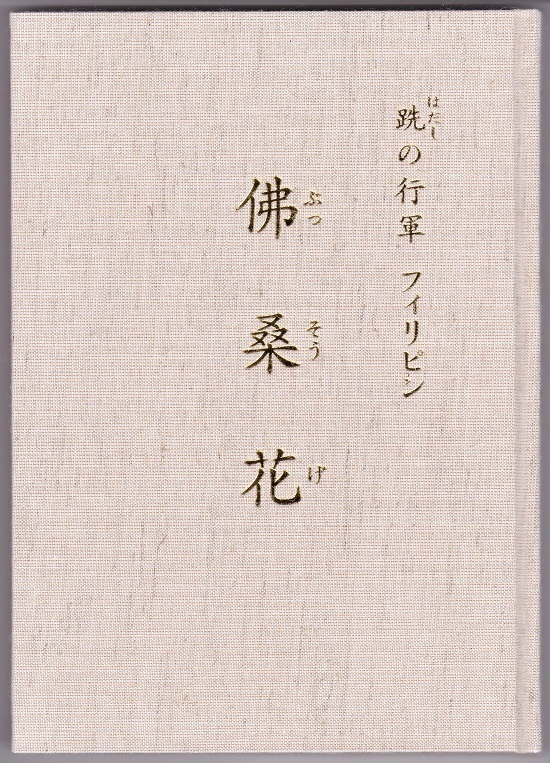 跣の行軍 フィリピン
はだし
佛桑花
ぶっそうげ